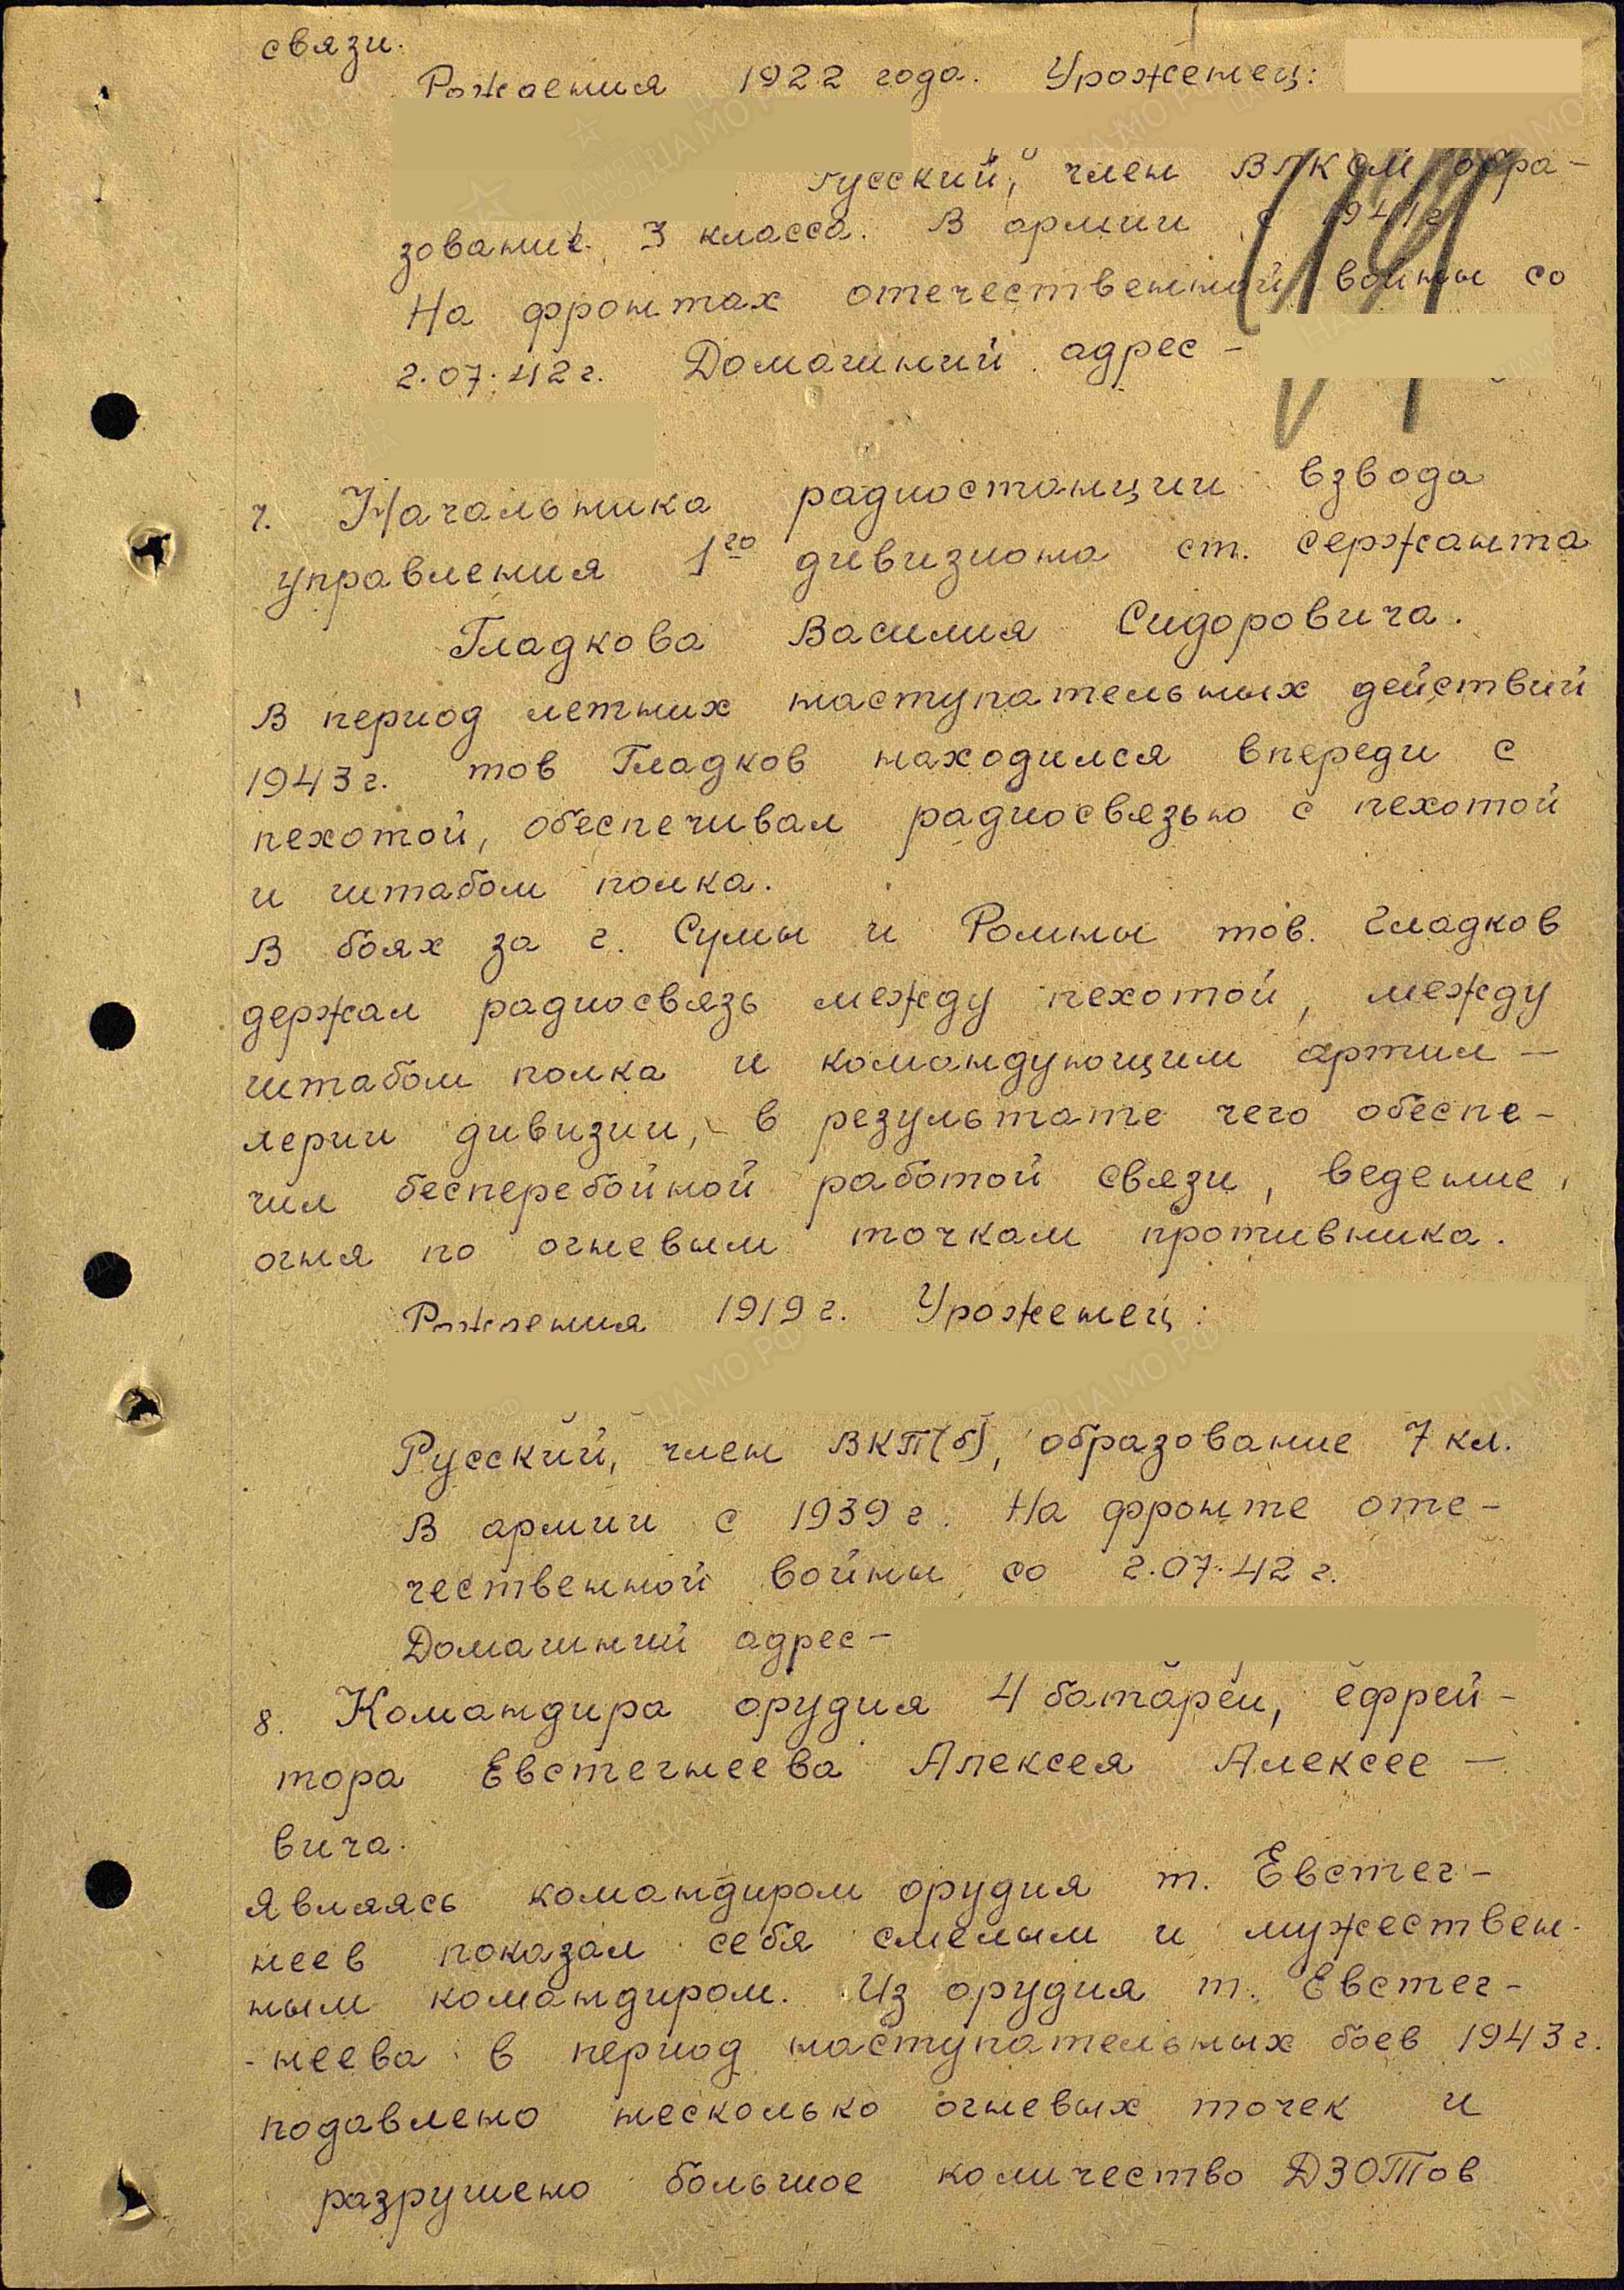 связи.
Рождения 1922 года. Уроженец:
Русский, член ВЛКСМ, обра-
зование 3 класса. В армии с 1941г
На фронтах отечественной войны со
2.07.42г. Домашний адрес -
7. Начальника радиостанции взвода
управления 1го дивизиона ст. сержанта
Гладкова Василия Сидоровича.
В период летних наступательных действий
1943г. тов Гладков находился впереди с
пехотой, обеспечивал радиосвязью с пехотой
и штабом полка.
В боях за г. Сумы и Ромны тов. Гладков
держал радиосвязь между пехотой, между
штабом полка и командующим артил-
лерии дивизии, в результате чего обеспе-
чил бесперебойной работой связи, ведение
огня по огневым точкам противника.
Рождения 1919г. Уроженец:
Русский, член ВКП(б), образование 7 кл.
В армии с 1939г. На фронте оте-
чественной войны со 2.07.42г.
Домашний адрес-
8. Командира орудия 4 батареи, ефрей-
тора Евстегнеева Алексея Алексее-
вича.
Являясь командиром орудия т. Евстег-
неев показал себя смелым и мужествен-
ным командиром. Из орудия т. Евстег-
-неева в период наступательных боев 1943г.
подавлено несколько огневых точек и
разрушено большое количество ДЗОТов